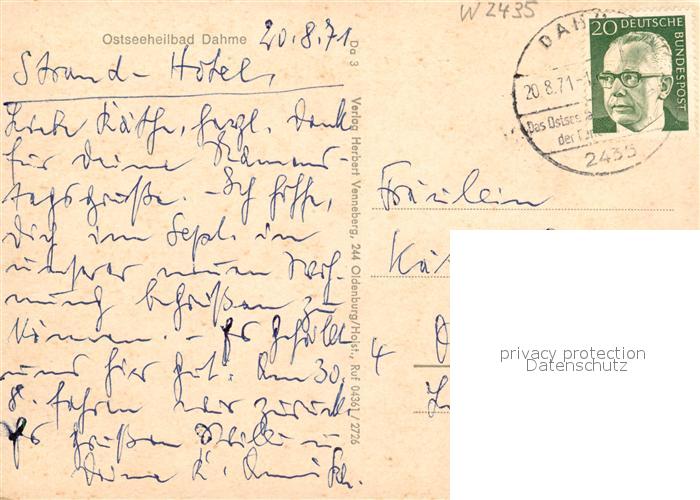 W 2435
Ostseeheilbad Dahme 20.8.71
Strand-Hotel,
Liebe Käthe, herzl. Dank
für Deine Namens-
tagsgrüße. – Ich hoffe,
Dich im Sept. in
unserer neuen Woh-
nung begrüßen zu
können. – Es gefällt
uns hier gut. Am 30.
8. fahren wir zurück.
Es grüßen Willi u.
Deine K.
Da 3 Verlag Herbert Venneberg, 244 Oldenburg/Holst., Ruf 04361/2726
DAH
20.8.71-1
Das Ostsee
der
2435
20 DEUTSCHE
BUNDESPOST
Fräulein
Kät
4
privacy protection
Datenschutz